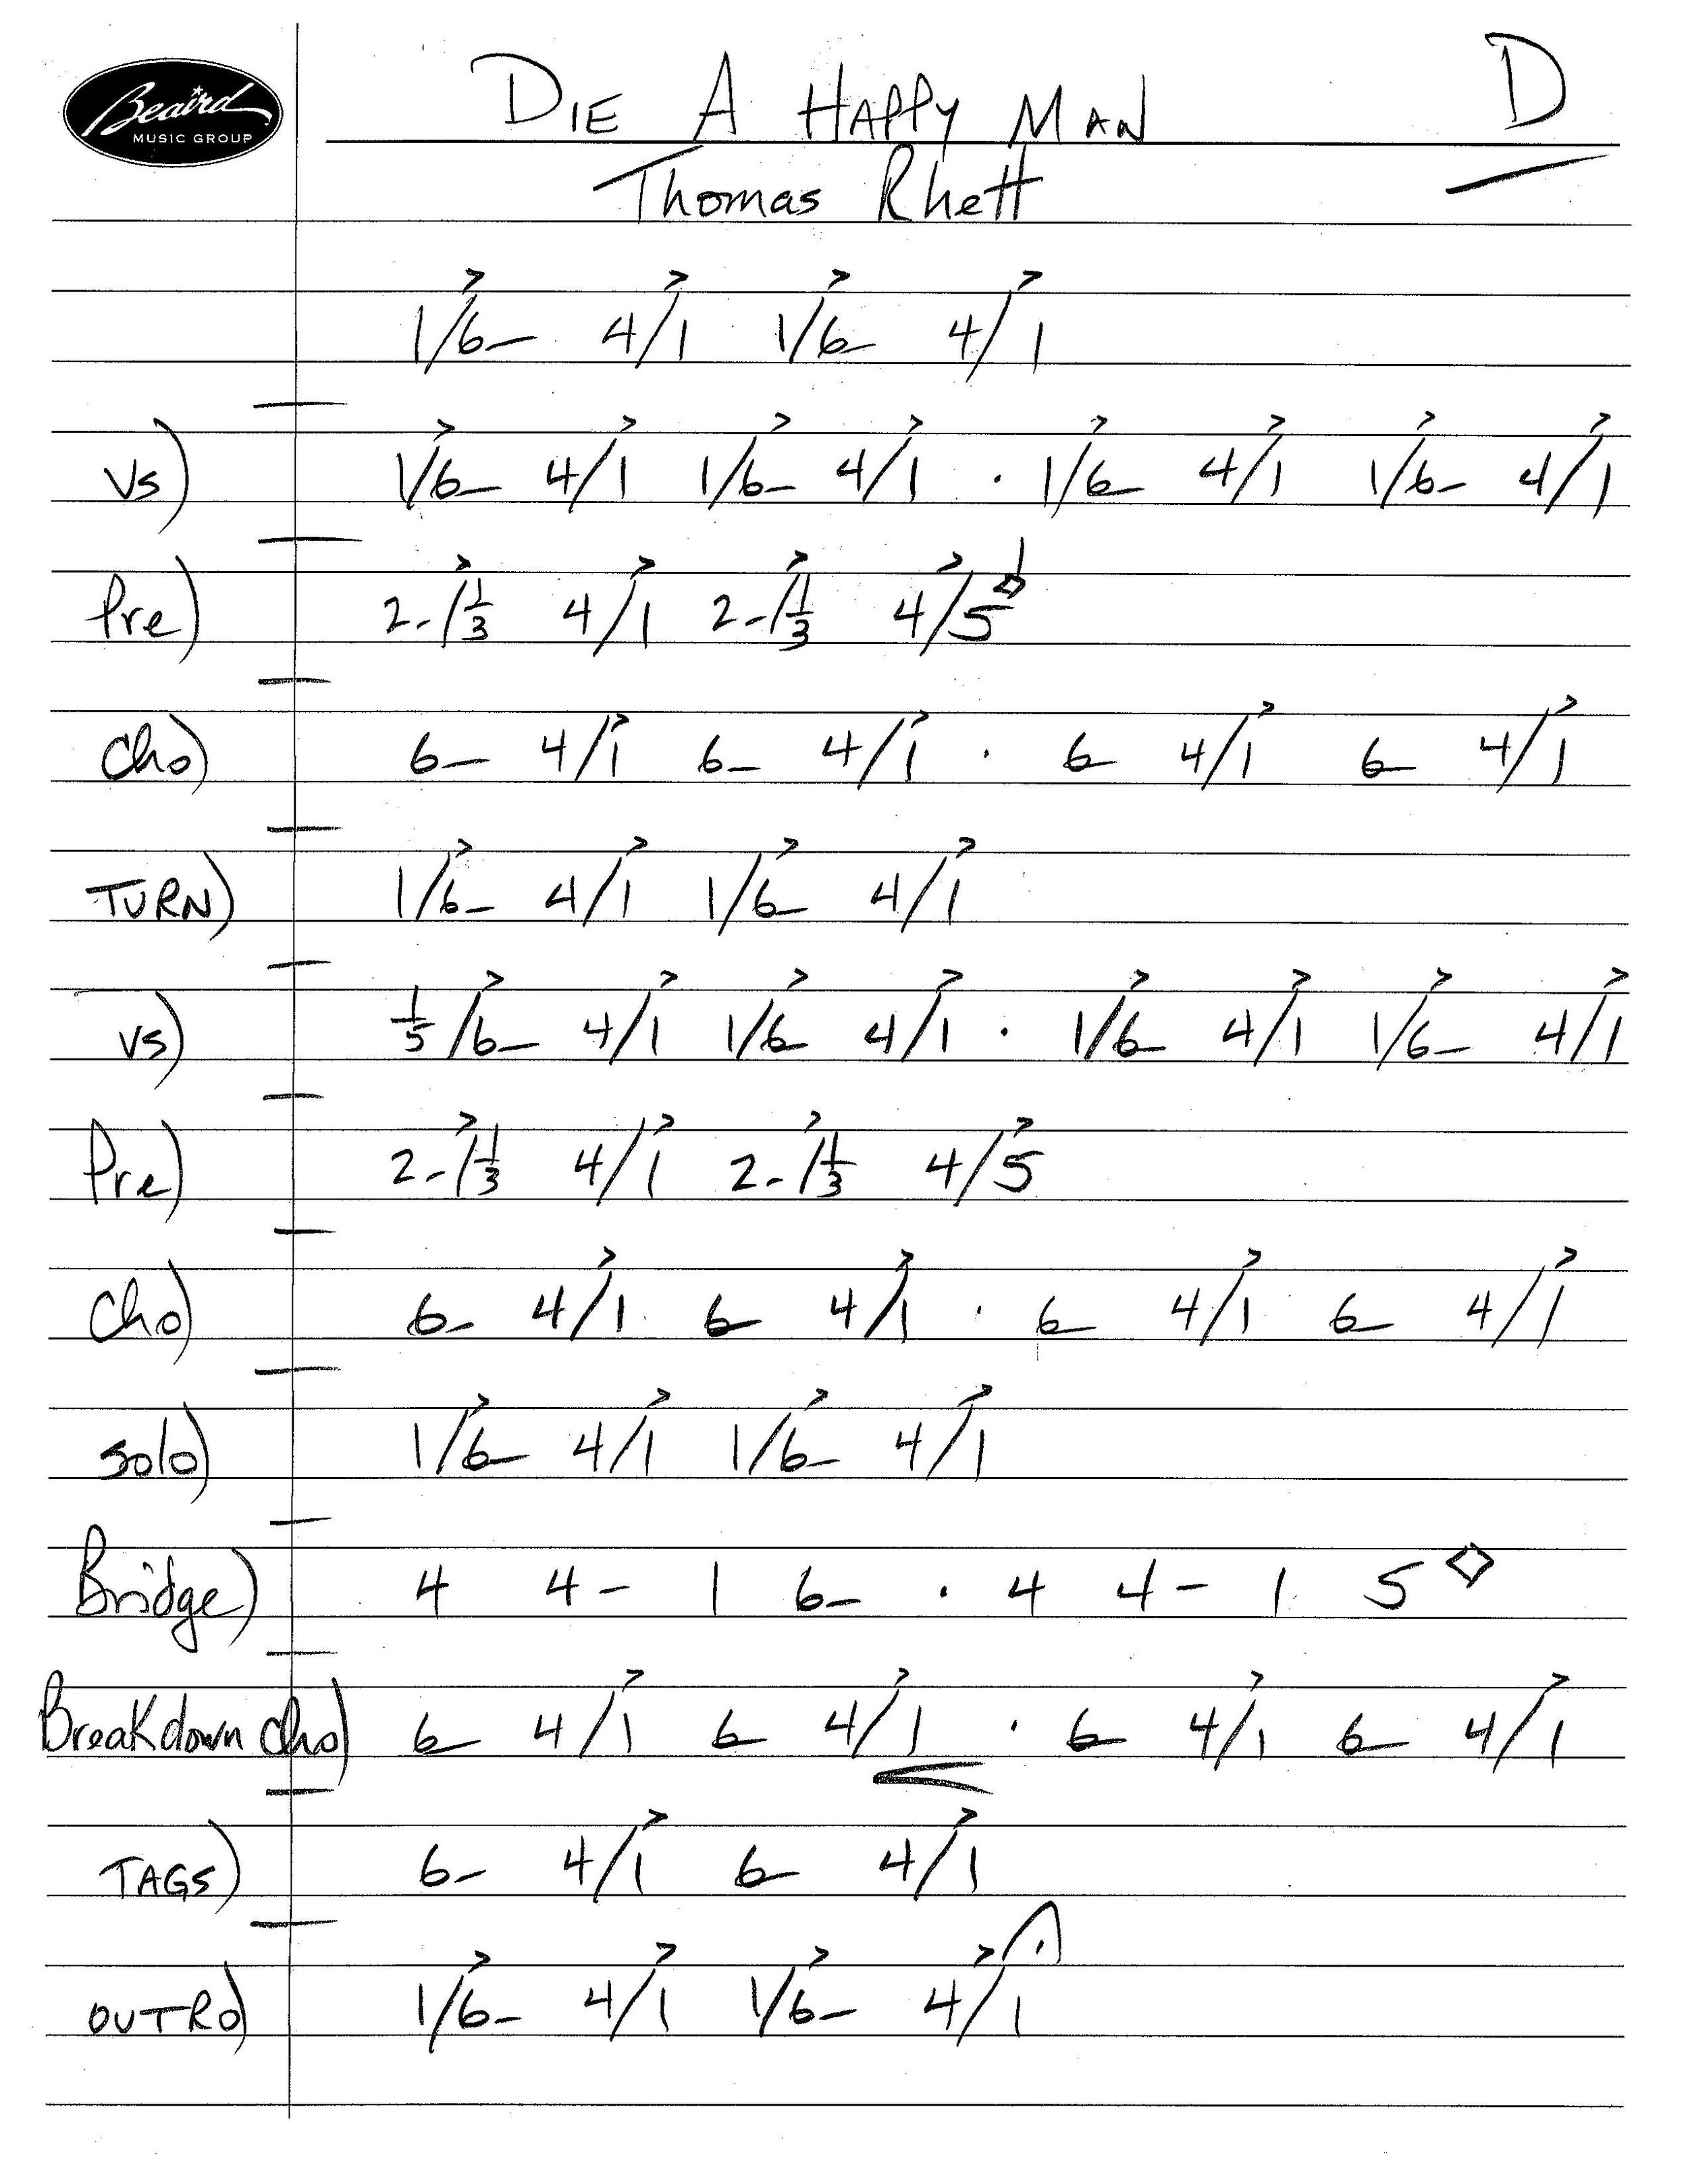 Beaird
MUSIC GROUP
DIE A HAPPY MAN D
Thomas Rhett
1/6- 4/1 1/6- 4/1
Vs) 1/6- 4/1 1/6- 4/1 . 1/6- 4/1 1/6- 4/1
Pre) 2-/1/3 4/1 2-/1/3 4/5◇
Cho) 6- 4/1 6- 4/1 . 6- 4/1 6- 4/1
TURN) 1/6- 4/1 1/6- 4/1
Vs) 1/5/6- 4/1 1/6- 4/1 . 1/6- 4/1 1/6- 4/1
Pre) 2-/1/3 4/1 2-/1/3 4/5
Cho) 6- 4/1 6- 4/1 . 6- 4/1 6- 4/1
Solo) 1/6- 4/1 1/6- 4/1
Bridge) 4 4- 1 6- . 4 4- 1 5◇
Breakdown Cho) 6- 4/1 6- 4/1 . 6- 4/1 6- 4/1
TAGS) 6- 4/1 6- 4/1
OUTRO) 1/6- 4/1 1/6- 4/1